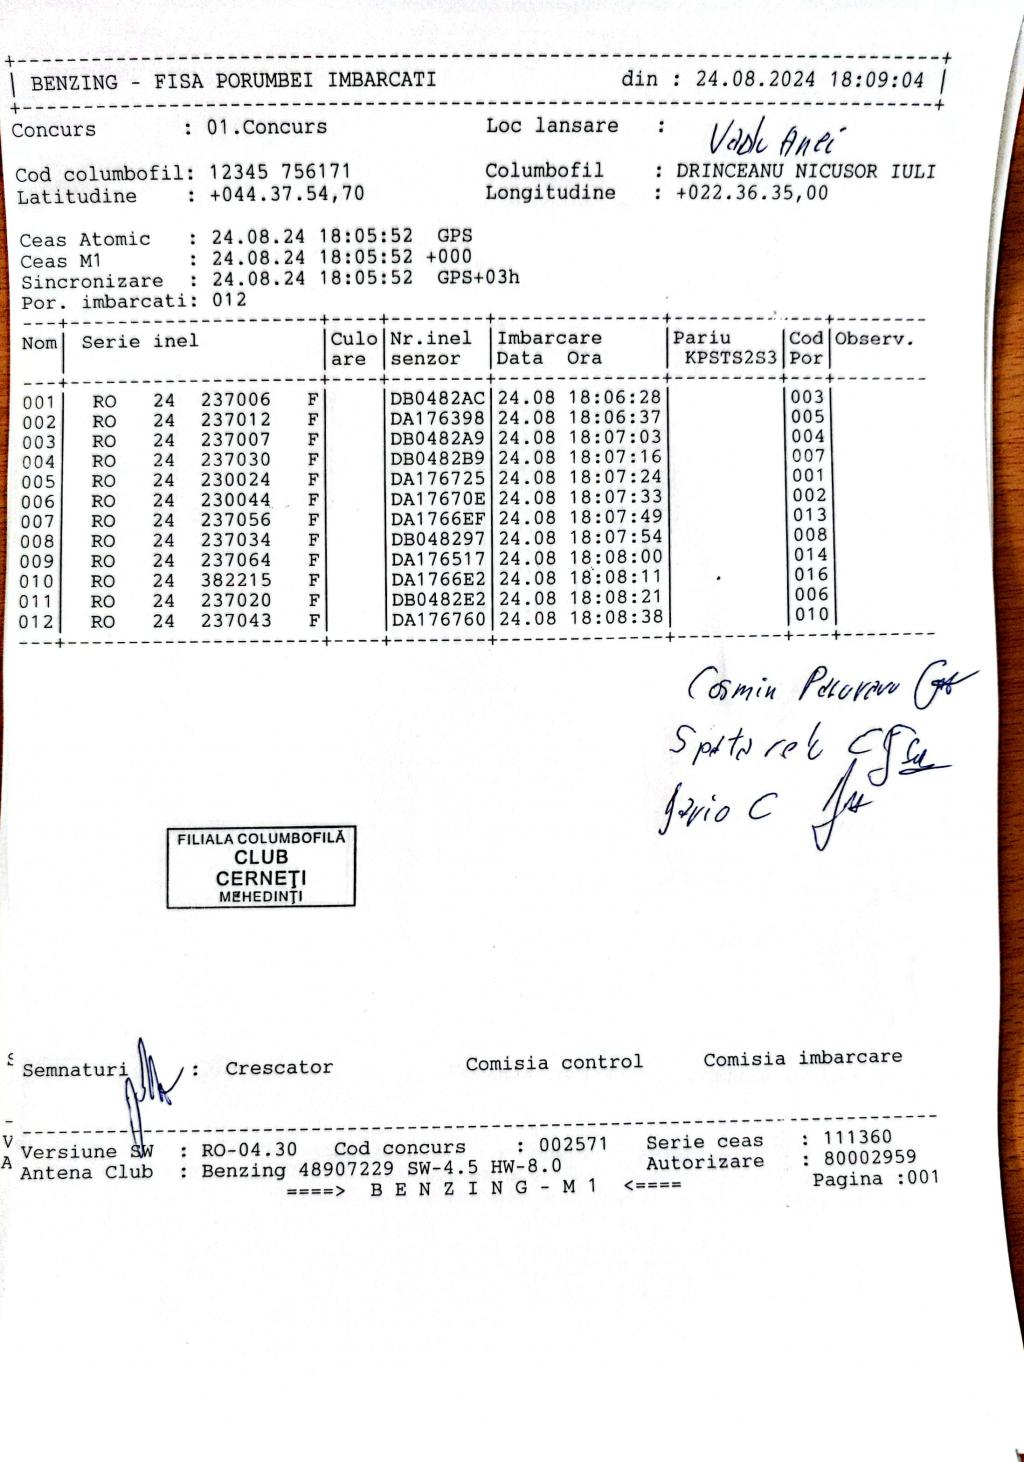 BENZING - FISA PORUMBEI IMBARCATI din : 24.08.2024 18:09:04
Concurs : 01.Concurs Loc lansare :
Cod columbofil: 12345 756171 Columbofil : DRINCEANU NICUSOR IULI
Latitudine : +044.37.54,70 Longitudine : +022.36.35,00
Ceas Atomic : 24.08.24 18:05:52 GPS
Ceas M1 : 24.08.24 18:05:52 +000
Sincronizare : 24.08.24 18:05:52 GPS+03h
Por. imbarcati: 012
Nom Serie inel Culo Nr.inel Imbarcare Pariu Cod Observ.
are senzor Data Ora KPSTS2S3 Por
001 RO 24 237006 F DB0482AC 24.08 18:06:28 003
002 RO 24 237012 F DA176398 24.08 18:06:37 005
003 RO 24 237007 F DB0482A9 24.08 18:07:03 004
004 RO 24 237030 F DB0482B9 24.08 18:07:16 007
005 RO 24 230024 F DA176725 24.08 18:07:24 001
006 RO 24 230044 F DA17670E 24.08 18:07:33 002
007 RO 24 237056 F DA1766EF 24.08 18:07:49 013
008 RO 24 237034 F DB048297 24.08 18:07:54 008
009 RO 24 237064 F DA176517 24.08 18:08:00 014
010 RO 24 382215 F DA1766E2 24.08 18:08:11 016
011 RO 24 237020 F DB0482E2 24.08 18:08:21 006
012 RO 24 237043 F DA176760 24.08 18:08:38 010
Cosmin
FILIALA COLUMBOFILĂ
CLUB
CERNEŢI
MEHEDINŢI
Semnaturi : Crescator Comisia control Comisia imbarcare
Versiune SW : RO-04.30 Cod concurs : 002571 Serie ceas : 111360
Antena Club : Benzing 48907229 SW-4.5 HW-8.0 Autorizare : 80002959
====> B E N Z I N G - M 1 <==== Pagina :001